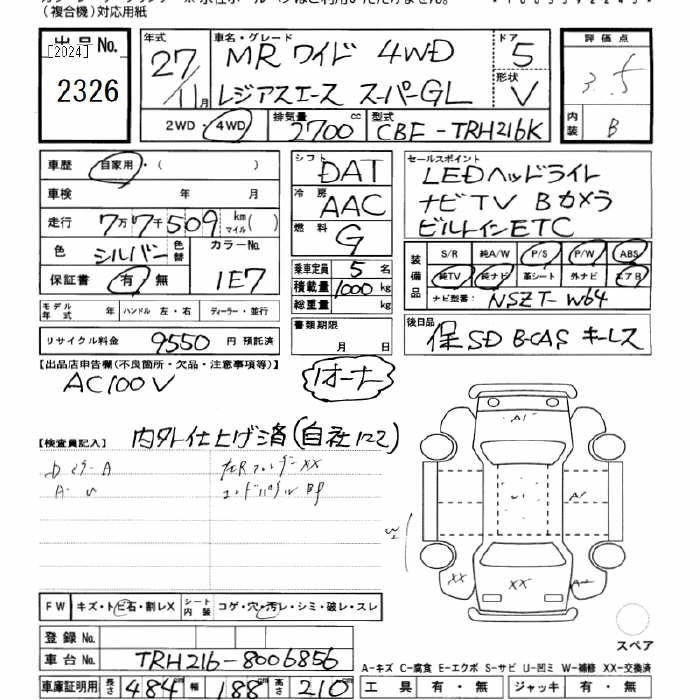 (複合機)対応用紙
出品No.
[2024]
2326
年式
27/11月
車名・グレード
MRワイド 4WD
レジアスエース スーパーGL
ドア
5
形状
V
2WD・4WD
排気量
2700 cc
型式
CBF-TRH216K
評価点
3.5
内装
B
車歴 自家用・( )
車検 年 月
走行 7万7千509 km マイル( )
色 シルバー 色替
カラーNo.
1E7
保証書 有・無
モデル年式 年 ハンドル 左・右 ディーラー・並行
リサイクル料金 9550 円 預託済
シフト DAT
冷房 AAC
燃料 G
乗車定員 5 名
積載量 1000 kg
総重量 kg
書類期限
月 日
セールスポイント
LEDヘッドライト
ナビTV Bカメラ
ビルトインETC
装備品
S/R 純A/W P/S P/W ABS
純TV 純ナビ 革シート 外ナビ エアB
ナビ型番: NSZT-W64
後日品
保 SD B-CAS キーレス
【出品店申告欄(不良箇所・欠品・注意事項等)】
AC100V
1オーナー
【検査員記入】
内外仕上げ済(自社122)
XX
A1
A1
XX
XX
FW キズ・トビ石・割レX シート内装 コゲ・穴・汚レ・シミ・破レ・スレ
登録No.
車台No. TRH216-8006856
車庫証明用 長さ 484 幅 188 高さ 210
スペア
A-キズ C-腐食 E-エクボ S-サビ U-凹ミ W-補修 XX-交換済
工具 有・無 ジャッキ 有・無